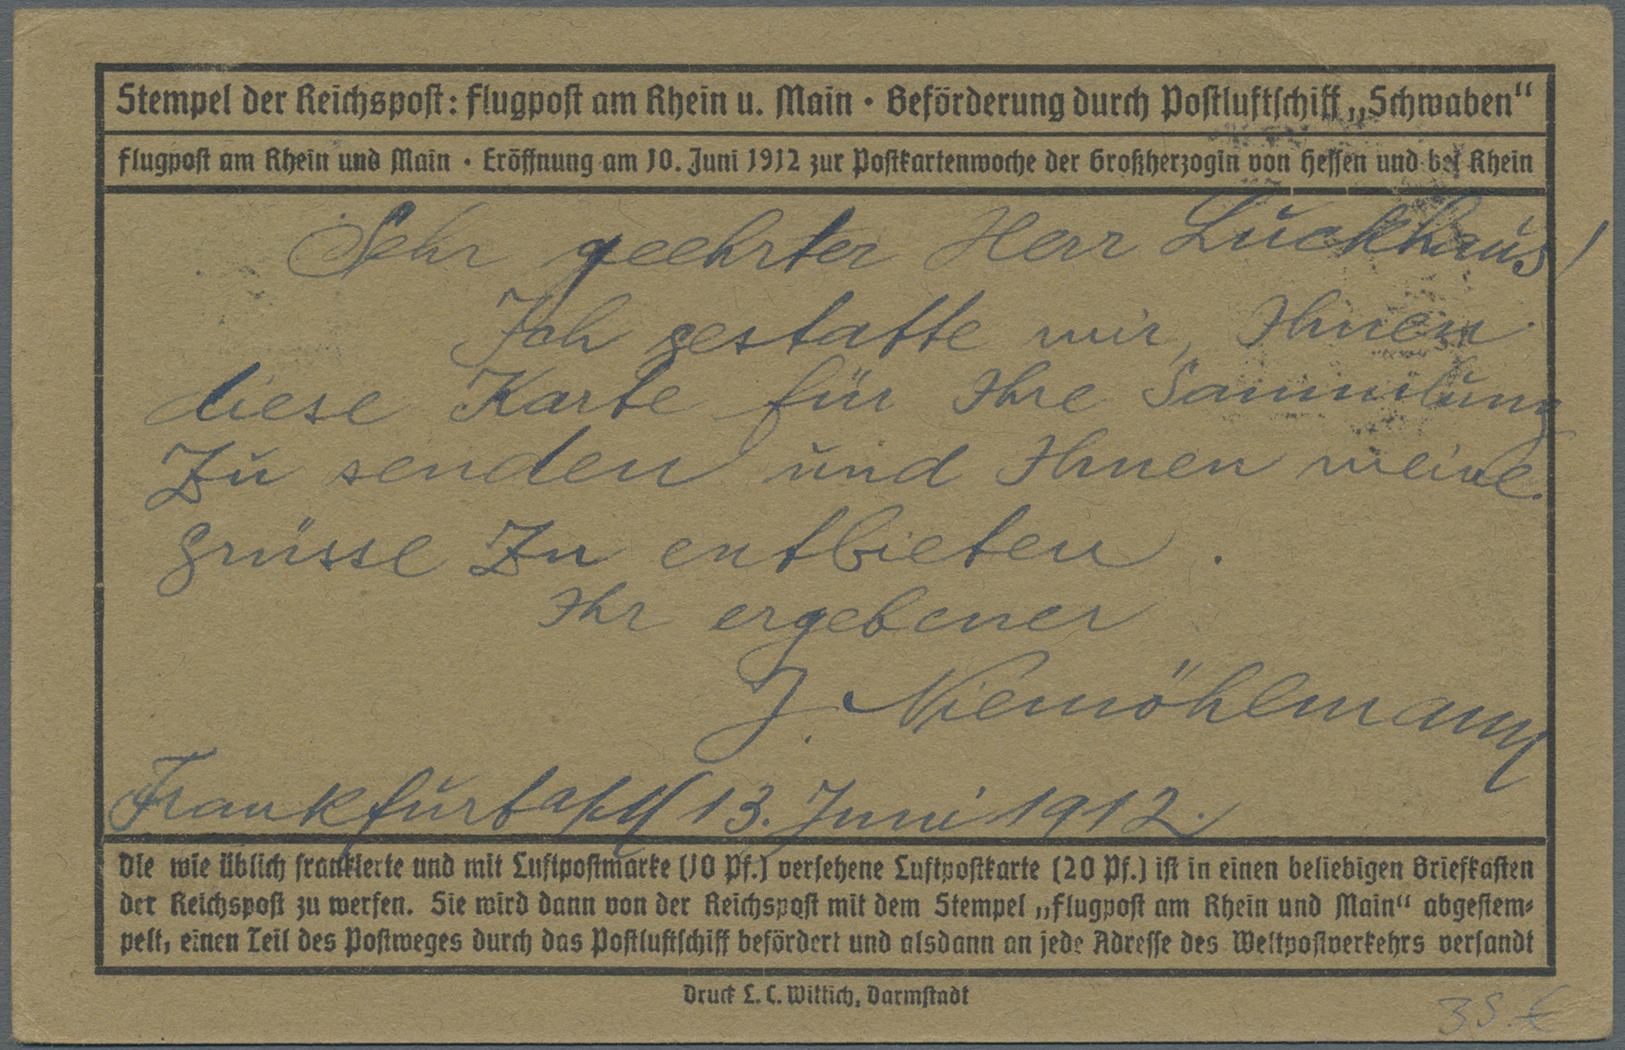 Stempel der Reichspost: Flugpost am Rhein u. Main · Beförderung durch Postluftschiff „Schwaben“
Flugpost am Rhein und Main · Eröffnung am 10. Juni 1912 zur Postkartenwoche der Großherzogin von Hessen und bei Rhein
Sehr geehrter Herr Lückhaus!
Ich gestatte mir, Ihnen
diese Karte für Ihre Sammlung
zu senden und Ihnen meine
Grüsse zu entbieten.
Ihr ergebener
J. Niemöhlmann
Frankfurt a/M 13. Juni 1912.
Die wie üblich frankierte und mit Luftpostmarke (10 Pf.) versehene Luftpostkarte (20 Pf.) ist in einen beliebigen Briefkasten
der Reichspost zu werfen. Sie wird dann von der Reichspost mit dem Stempel „Flugpost am Rhein und Main“ abgestem-
pelt, einen Teil des Postweges durch das Postluftschiff befördert und alsdann an jede Adresse des Weltpostverkehrs versandt
Druck L. C. Wittich, Darmstadt
35.€